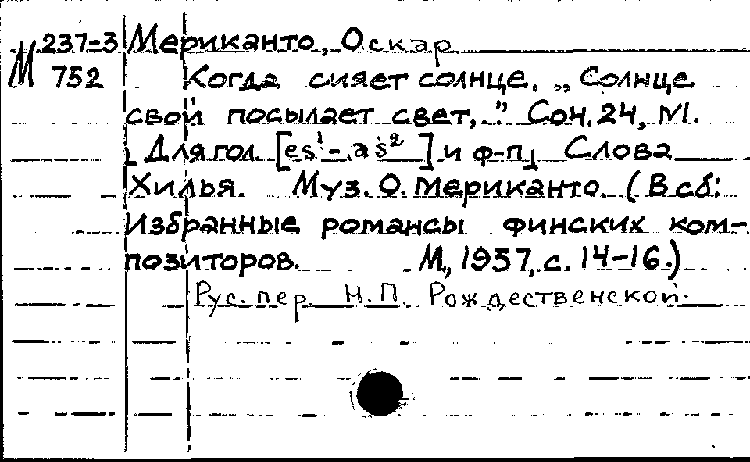 237-3 Мериканто, Оскар
М 752 Когда сияет солнце. „Солнце
свой посылает свет,.." Соч. 24, №1.
[Для гол. [es¹-as²] и ф-п] Слова
Хилья. Муз. О. Мериканто. (В сб:
Избранные романсы финских ком-
позиторов. М., 1957, с. 14-16.)
Рус. пер. Н.П. Рождественской.